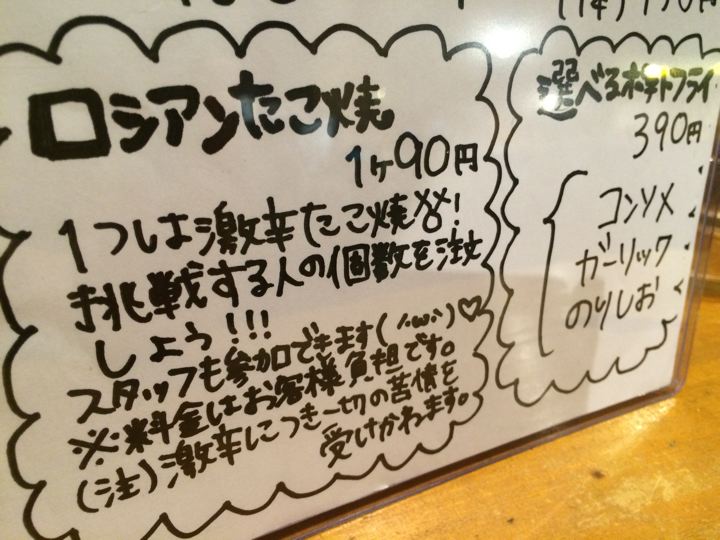 ロシアンたこ焼
1ヶ90円
1つは激辛たこ焼!
挑戦する人の個数を注文
しよう!!!
スタッフも参加できます(´・ω・`)♡
※料金はお客様負担です。
(注)激辛につき一切の苦情を
受けかねます。
選べるポテトフライ
390円
コンソメ
ガーリック
のりしお